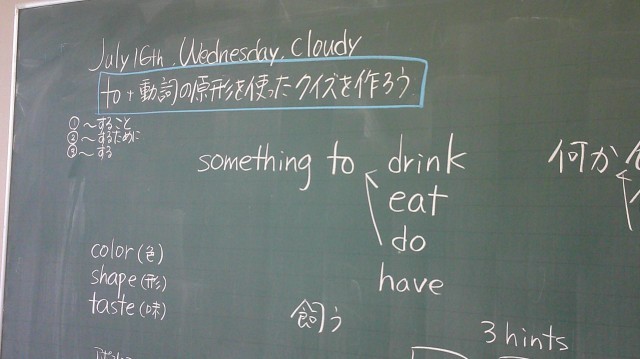 July 16th, Wednesday, Cloudy
to + 動詞の原形を使ったクイズを作ろう
① ～すること
② ～するために
③ ～する
something to drink
eat
do
have
何か
color (色)
shape (形)
taste (味)
飼う
3 hints